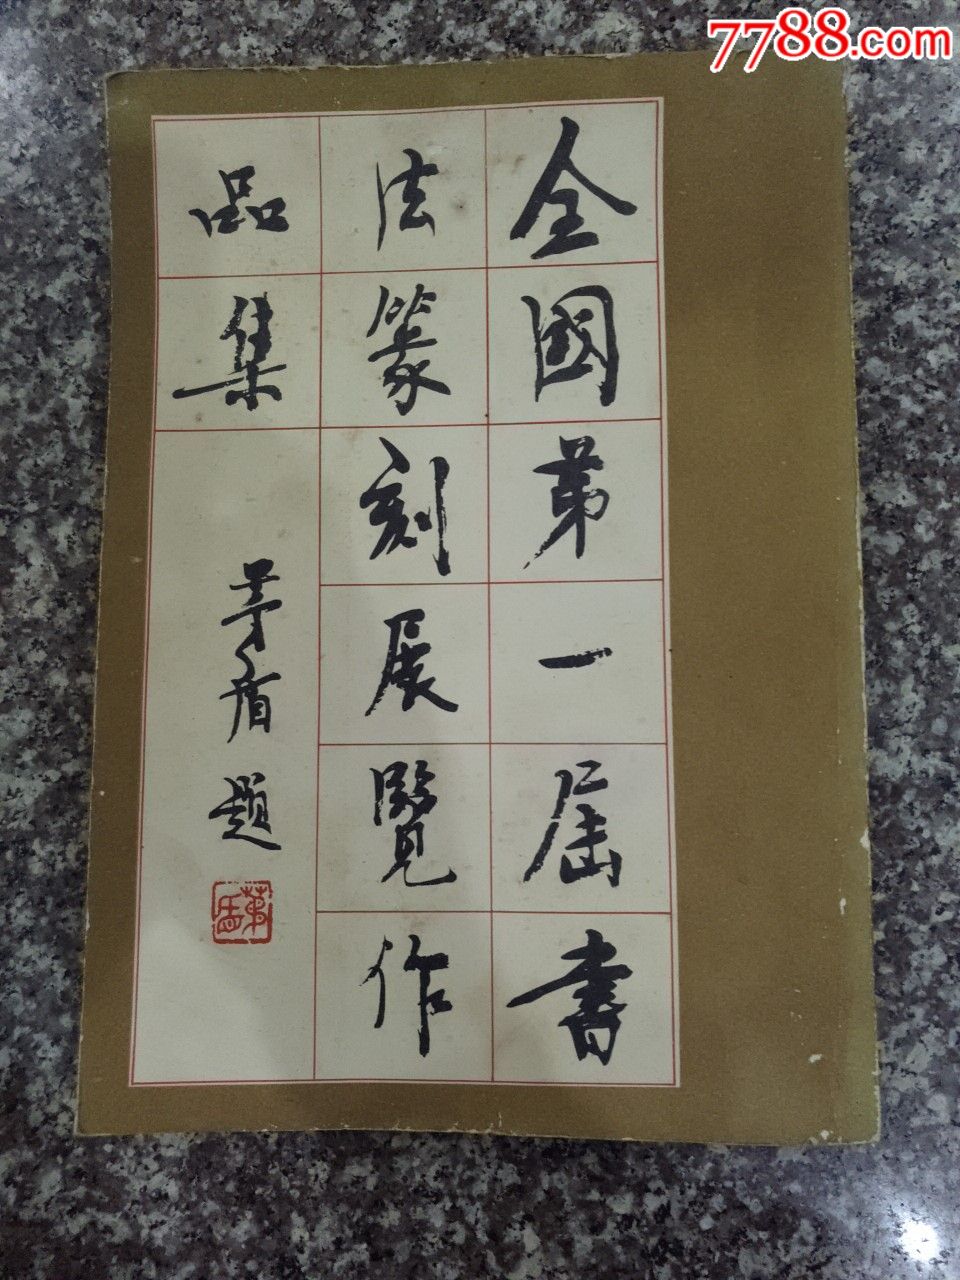 7788.com
全國第一屆書
法篆刻展覽作
品集
茅盾題